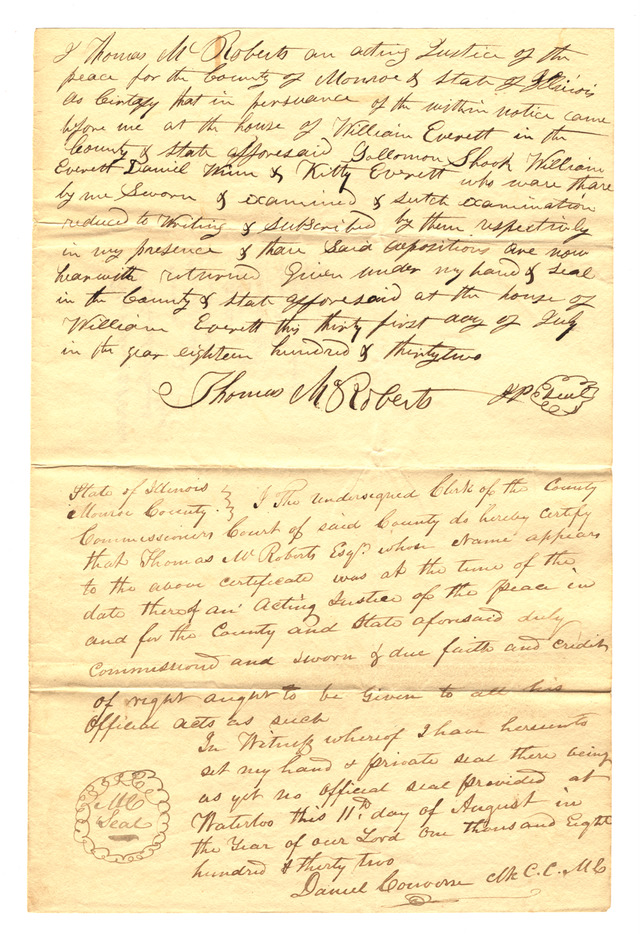 I Thomas Mc Roberts an acting Justice of the
peace for the County of Monroe & State of Illinois
do Certafy that in persuance of the within notice came
before me at the house of William Everett in the
County & state afforesaid Sollomon Shook William
Everett Daniel Winn & Kitty Everett who ware thare
by me Sworn & examined & sutch examination
reduced to Writing & subscribed by them respectivly
in my presence & thare Said depositions are now
hearwith returned Given under my hand & Seal
in the County & state afforesaid at the house of
William Everett this thirty first day of July
in the year eighteen hundred & thirtytwo
Thomas Mc Roberts JP Seal
State of Illinois
Monroe County. } I The undersigned Clerk of the County
Commissioners Court of said County do hereby certify
that Thomas Mc Roberts Esqr. whose Name appears
to the above certificate was at the time of the
date thereof an Acting Justice of the Peace in
and for the County and State aforesaid duly
Commissiond and sworn & due faith and credit
of right aught to be Given to all his
Official acts as such
In Witness whereof I have hereunto
set my hand & private seal there being
as yet no Official seal provided at
Waterloo this 11th day of August in
the Year of our Lord One thousand Eight
hundred & thirty two
Seal
Daniel Converse Clk C. C. M C